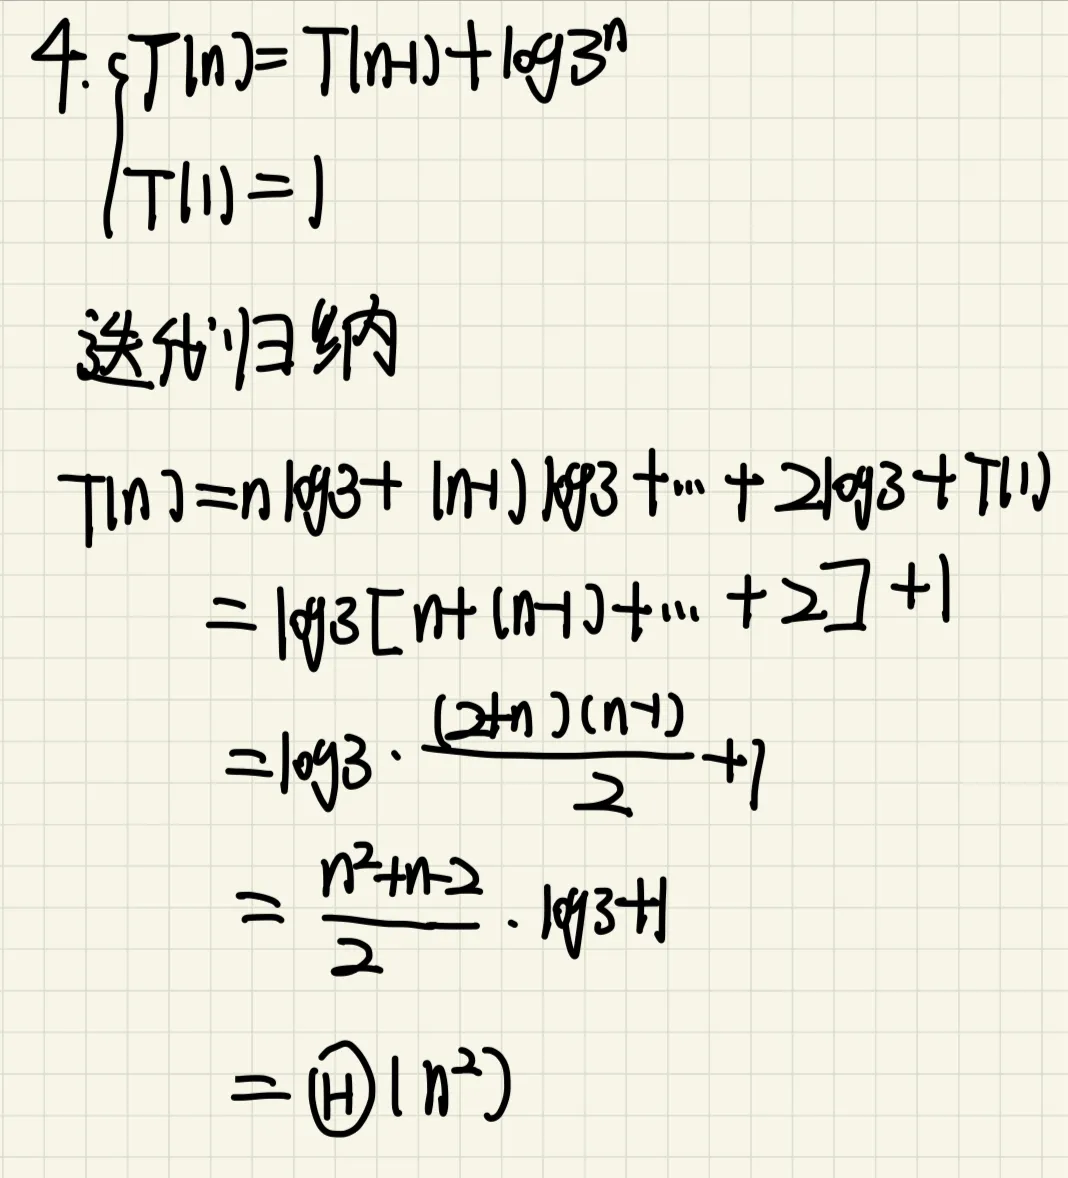 4. { T(n) = T(n-1) + log3ⁿ
T(1) = 1
迭代归纳
T(n) = nlog3 + (n-1)log3 + … + 2log3 + T(1)
= log3[n+(n-1)+…+2]+1
= log3 · (2+n)(n-1)/2 + 1
= n²+n-2/2 · log3+1
= Θ(n²)